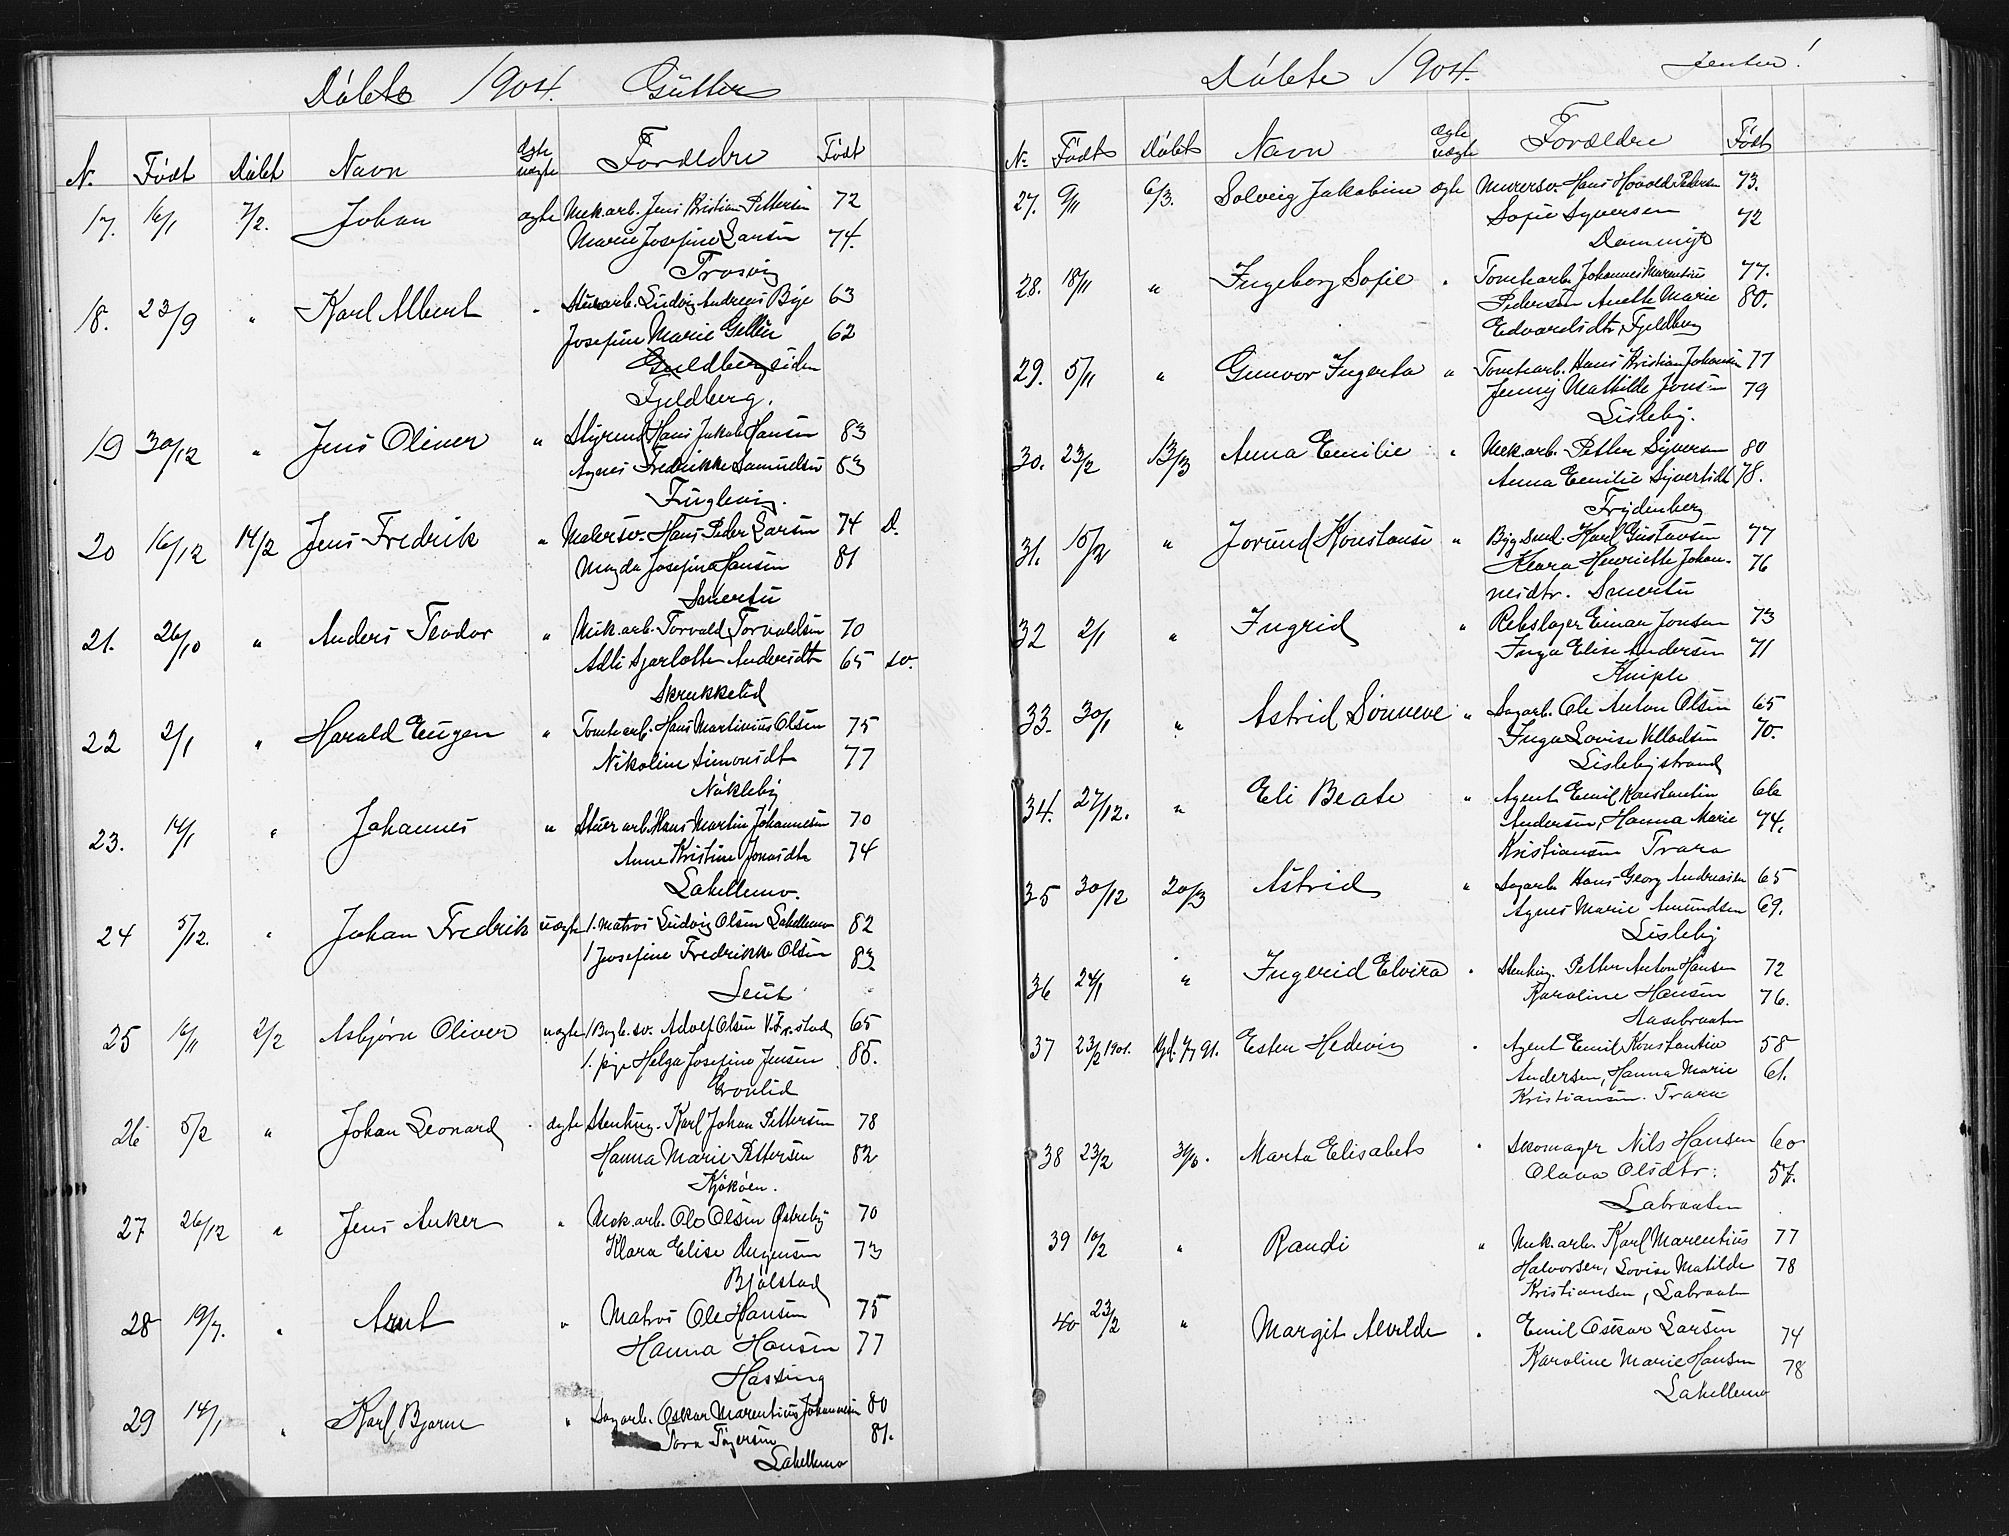 Döbte 1904. Gutter
N. Født Døbt Navn ægte uægte Forældre Født
17. 16/1 7/2. Johan ægte Mek.arb. Jens Kristian Pettersen 72
Marie Josefine Larsen 74.
Trosvig
18. 23/9 " Karl Albert " Stuerarb. Ludvig Andreas Bye 63
Josefine Marie Gellin 62
Guldberg siden
Fjeldberg.
19 30/12 " Jens Oliver " Styrmd. Hans Jakob Hansen 83
Agnes Fredrikke Samuelsen 83
Fuglevig.
20 16/12 14/2 Jens Fredrik " Malersv. Hans Peder Larsen 74 D.
Magda Josefine Hansen 81
Smertu
21. 26/10 " Anders Teodor " Mek.arb. Torvald Torvaldsen 70
Adli Sjarlotte Andersdt 65 sv.
Skrukkelid
22 2/1 " Harald Eugen " Tomtearb. Hans Martinius Olsen 75
Nikoline Simonsdt 77
Nökleby
23. 14/1 " Johannes " Stuerarb. Hans Martin Johannesen 70
Anne Kristine Jonasdtr 74
Lahellemo.
24 5/12. " Johan Fredrik uægte 1. Matros Ludvig Olsen Lahellemo 82
1 Josefine Fredrikke Olsen 83
Leut
25 16/11 2/2 Asbjørn Oliver uægte 1 Bogb.sv. Adolf Olsen V. Fr.stad 65
1. pige Helga Josefine Jensen 85.
Gronlid
26 5/2 " Johan Leonard ægte Stenhug. Karl Johan Pettersen 78
Hanna Marie Pettersen 82
Kjøkøen.
27 26/12 " Jens Anker " Mek.arb. Ole Olsen Østreby 70
Klara Elise Jørgensen 73
Bjølstad
28 19/7. " Arnt " Matros Ole Hansen 75
Hanna Hansen 77
Hassing
29 14/1 " Karl Bjarne " Sagarb. Oskar Marentius Johannesen 80
Tora Tøgersen 81.
Lahellemo
Døbte 1904. Jenter!
N. Født Døbt Navn ægte uægte Forældre Født
27. 9/11 6/3. Solveig Jakobine ægte Murersv. Hans Hovald Pedersen 73.
Sofie Syversen 72
Dammyr
28. 18/11 " Ingeborg Sofie " Tomtearb. Johannes Marentius 77.
Pedersen Anette Marie 80.
Edvardsdtr, Fjeldberg
29. 5/11 " Gunvor Ingerta " Tomtearb. Hans Kristian Johansen 77
Jenny Mathilde Jensen 79
Lisleby.
30. 23/2 13/3 Anna Emilie " Mek.arb. Petter Syversen 80
Anna Emilie Syvertsdt 78.
Frydenberg
31. 15/2 " Jorund Konstanse " Bygsml. Karl Gustavsen 77
Klara Henriette Johan- 76
nesdtr. Smertu
32 2/1 " Ingrid " Rebslager Einar Jonsen 73
Inga Elise Andersen 71
Kniple
33. 30/1 " Astrid Sønneve " Sagarb. Ole Anton Olsen 65
Inga Lovise Villadsen 70.
Lislebystrand
34. 27/12. " Eli Beate " Agent Emil Konstantin 66
Andersen, Hanna Marie 74.
Kristiansen Trara
35 30/12 20/3 Astrid " Sagarb. Hans Georg Andreasen 65
Agnes Marie Amundsen 69.
Lisleby
36 24/1 " Ingerid Elvira " Stenhug. Petter Anton Hansen 72
Karoline Hansen 76.
Aasebraaten
37 23/2 1901. Ester Hedevig " Agent Emil Konstantin 58
Andersen, Hanna Marie 61.
Kristiansen. Trara
38 23/2 Marta Elisabet " Skomager Nils Hansen 60
Olava Olsdtr. 57.
Labraaten
39 10/2 " Randi " Mek.arb. Karl Marentius 77
Halvorsen, Lovise Matilde 78
Kristiansen, Labraaten
40 23/2 " Margit Alvilde " Emil Oskar Larsen 74
Karoline Marie Hansen 78
Lahellemo